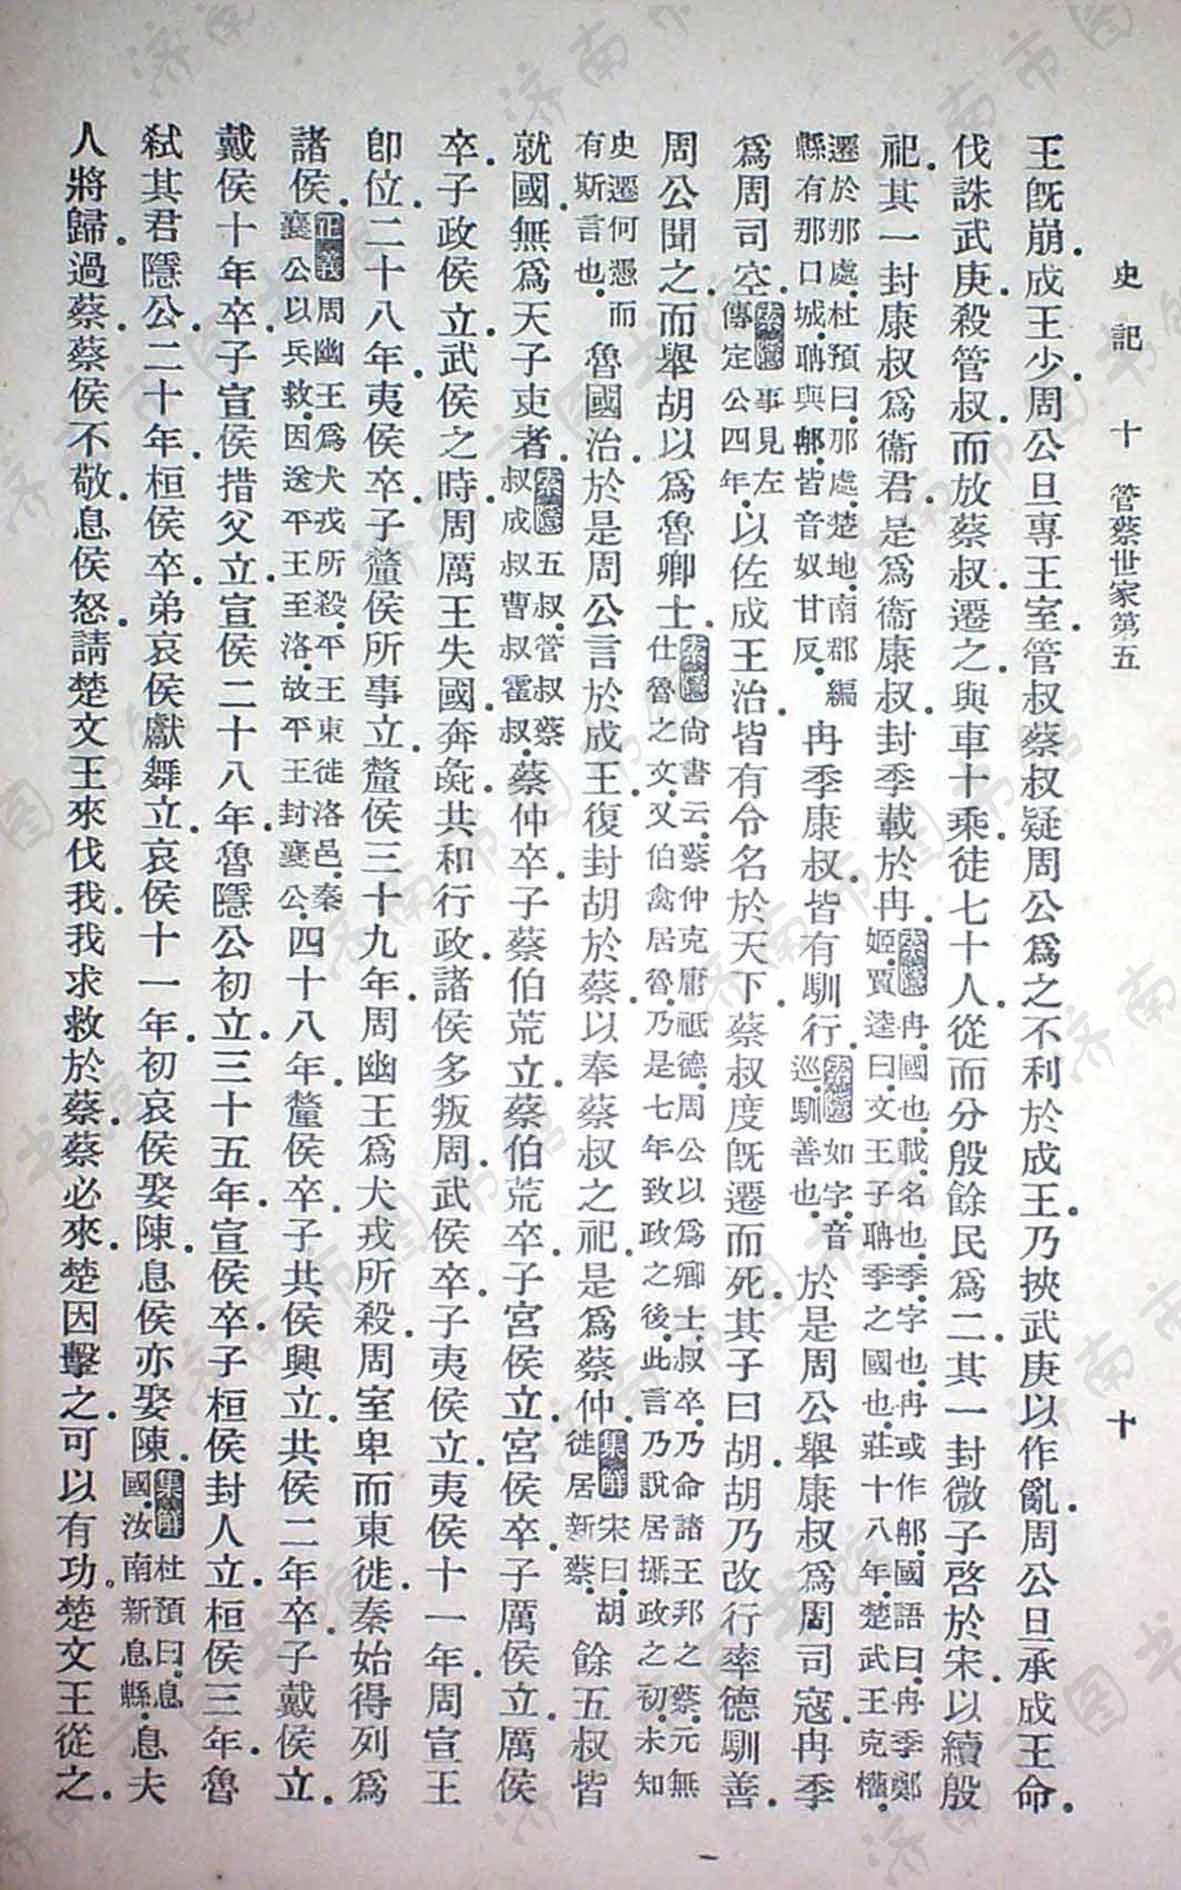 史記　十　管蔡世家第五　十
王旣崩.成王少.周公旦專王室.管叔蔡叔疑周公爲之不利於成王.乃挾武庚以作亂.周公旦承成王命.
伐誅武庚.殺管叔.而放蔡叔.遷之.與車十乘.徒七十人.從而分殷餘民爲二.其一封微子啓於宋.以續殷
祀.其一封康叔爲衞君.是爲衞康叔.封季載於冉.索隱冉.國也.載.名也.季.字也.冉或作𨚗.國語曰.冉季鄭
姬.賈逵曰.文王子聃季之國也.莊十八年.楚武王克權.
遷於那處.杜預曰.那處.楚地.南郡編
縣有那口城.聃與𨚗.皆音奴甘反.冉季康叔.皆有馴行.索隱如字.音
巡.馴善也.於是周公舉康叔爲周司寇.冉季
爲周司空.索隱事見左
傳定公四年.以佐成王治.皆有令名於天下.蔡叔度旣遷而死.其子曰胡.胡乃改行率德馴善.
周公聞之.而舉胡以爲魯卿士.索隱尙書云.蔡仲克庸祗德.周公以爲卿士.叔卒.乃命諸王邦之蔡.元無
仕魯之文.又伯禽居魯.乃是七年致政之後.此言乃說居攝政之初.未知
史遷何憑而
有斯言也.魯國治.於是周公言於成王.復封胡於蔡.以奉蔡叔之祀.是爲蔡仲.集解宋曰.胡
徙居新蔡.餘五叔皆
就國.無爲天子吏者.索隱五叔.管叔蔡
叔成叔曹叔霍叔.蔡仲卒.子蔡伯荒立.蔡伯荒卒.子宮侯立.宮侯卒.子厲侯立.厲侯
卒.子武侯立.武侯之時.周厲王失國.奔彘.共和行政.諸侯多叛周.武侯卒.子夷侯立.夷侯十一年.周宣王
卽位.二十八年.夷侯卒.子釐侯所事立.釐侯三十九年.周幽王爲犬戎所殺.周室卑而東徙.秦始得列爲
諸侯.正義周幽王爲犬戎所殺.平王東徙洛邑.秦
襄公以兵救.因送平王至洛.故平王封襄公.四十八年.釐侯卒.子共侯興立.共侯二年卒.子戴侯立.
戴侯十年卒.子宣侯措父立.宣侯二十八年.魯隱公初立.三十五年.宣侯卒.子桓侯封人立.桓侯三年.魯
弒其君隱公.二十年.桓侯卒.弟哀侯獻舞立.哀侯十一年.初哀侯娶陳.息侯亦娶陳.集解杜預曰.息
國.汝南新息縣.息夫
人將歸.過蔡.蔡侯不敬.息侯怒.請楚文王來伐我.我求救於蔡.蔡必來.楚因擊之.可以有功。楚文王從之.
济南市图书馆